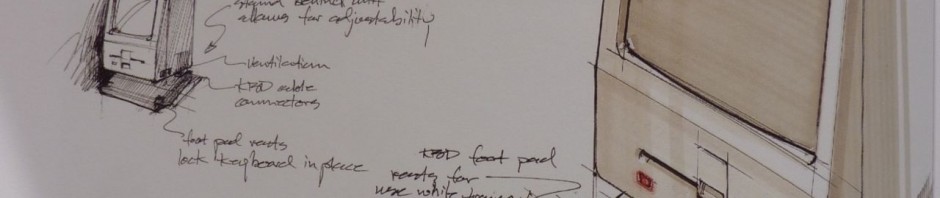 stand behind unit
allows for adjustability
ventilation
KBD cable
connectors
foot pad rests
lock keyboard in place
KBD foot pad
ready for
use while